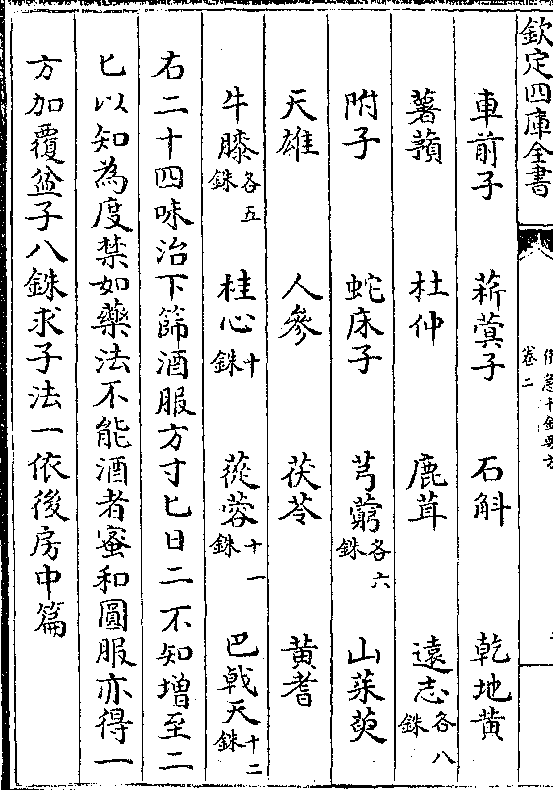 欽定四庫全書
卷二
車前子 菥蓂子 石斛 乾地黄
薯蕷 杜仲 鹿茸 遠志各八銖
附子 蛇床子 芎藭各六銖 山茱萸
天雄 人參 茯苓 黄耆
牛膝各五銖 桂心十銖 蓯蓉十一銖 巴戟天十二銖
右二十四味治下篩酒服方寸匕日二不知増至二
匕以知為度禁如藥法不能酒者蜜和圓服亦得一
方加覆盆子八銖求子法一依後房中篇